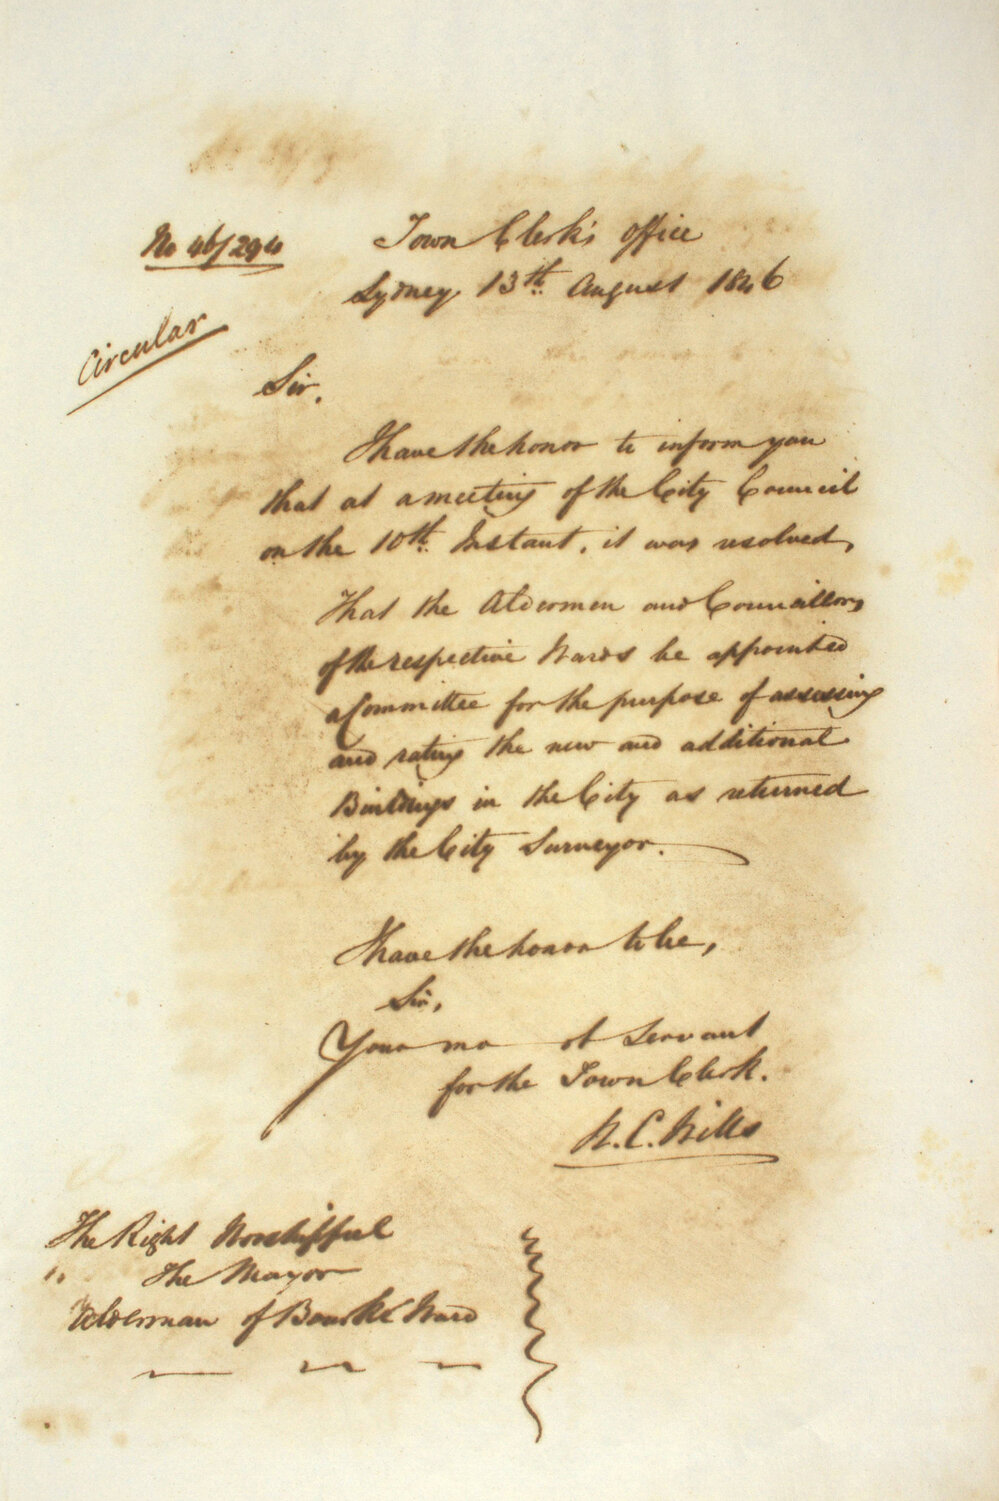 No 46/294
Town Clerk's Office
Sydney 13th August 1846
Circular
Sir,
I have the honor to inform you
that at a meeting of the City Council
on the 10th Instant, it was resolved,
That the Aldermen and Councillors,
of the respective Wards be appointed
a Committee for the purpose of assessing
and rating the new and additional
Buildings in the City as returned
by the City Surveyor.
I have the honor to be,
Sir,
Your mo ob Servant
for the Town Clerk.
W. C. Wills
The Right Worshipful
" The Mayor
Alderman of Bourke Ward